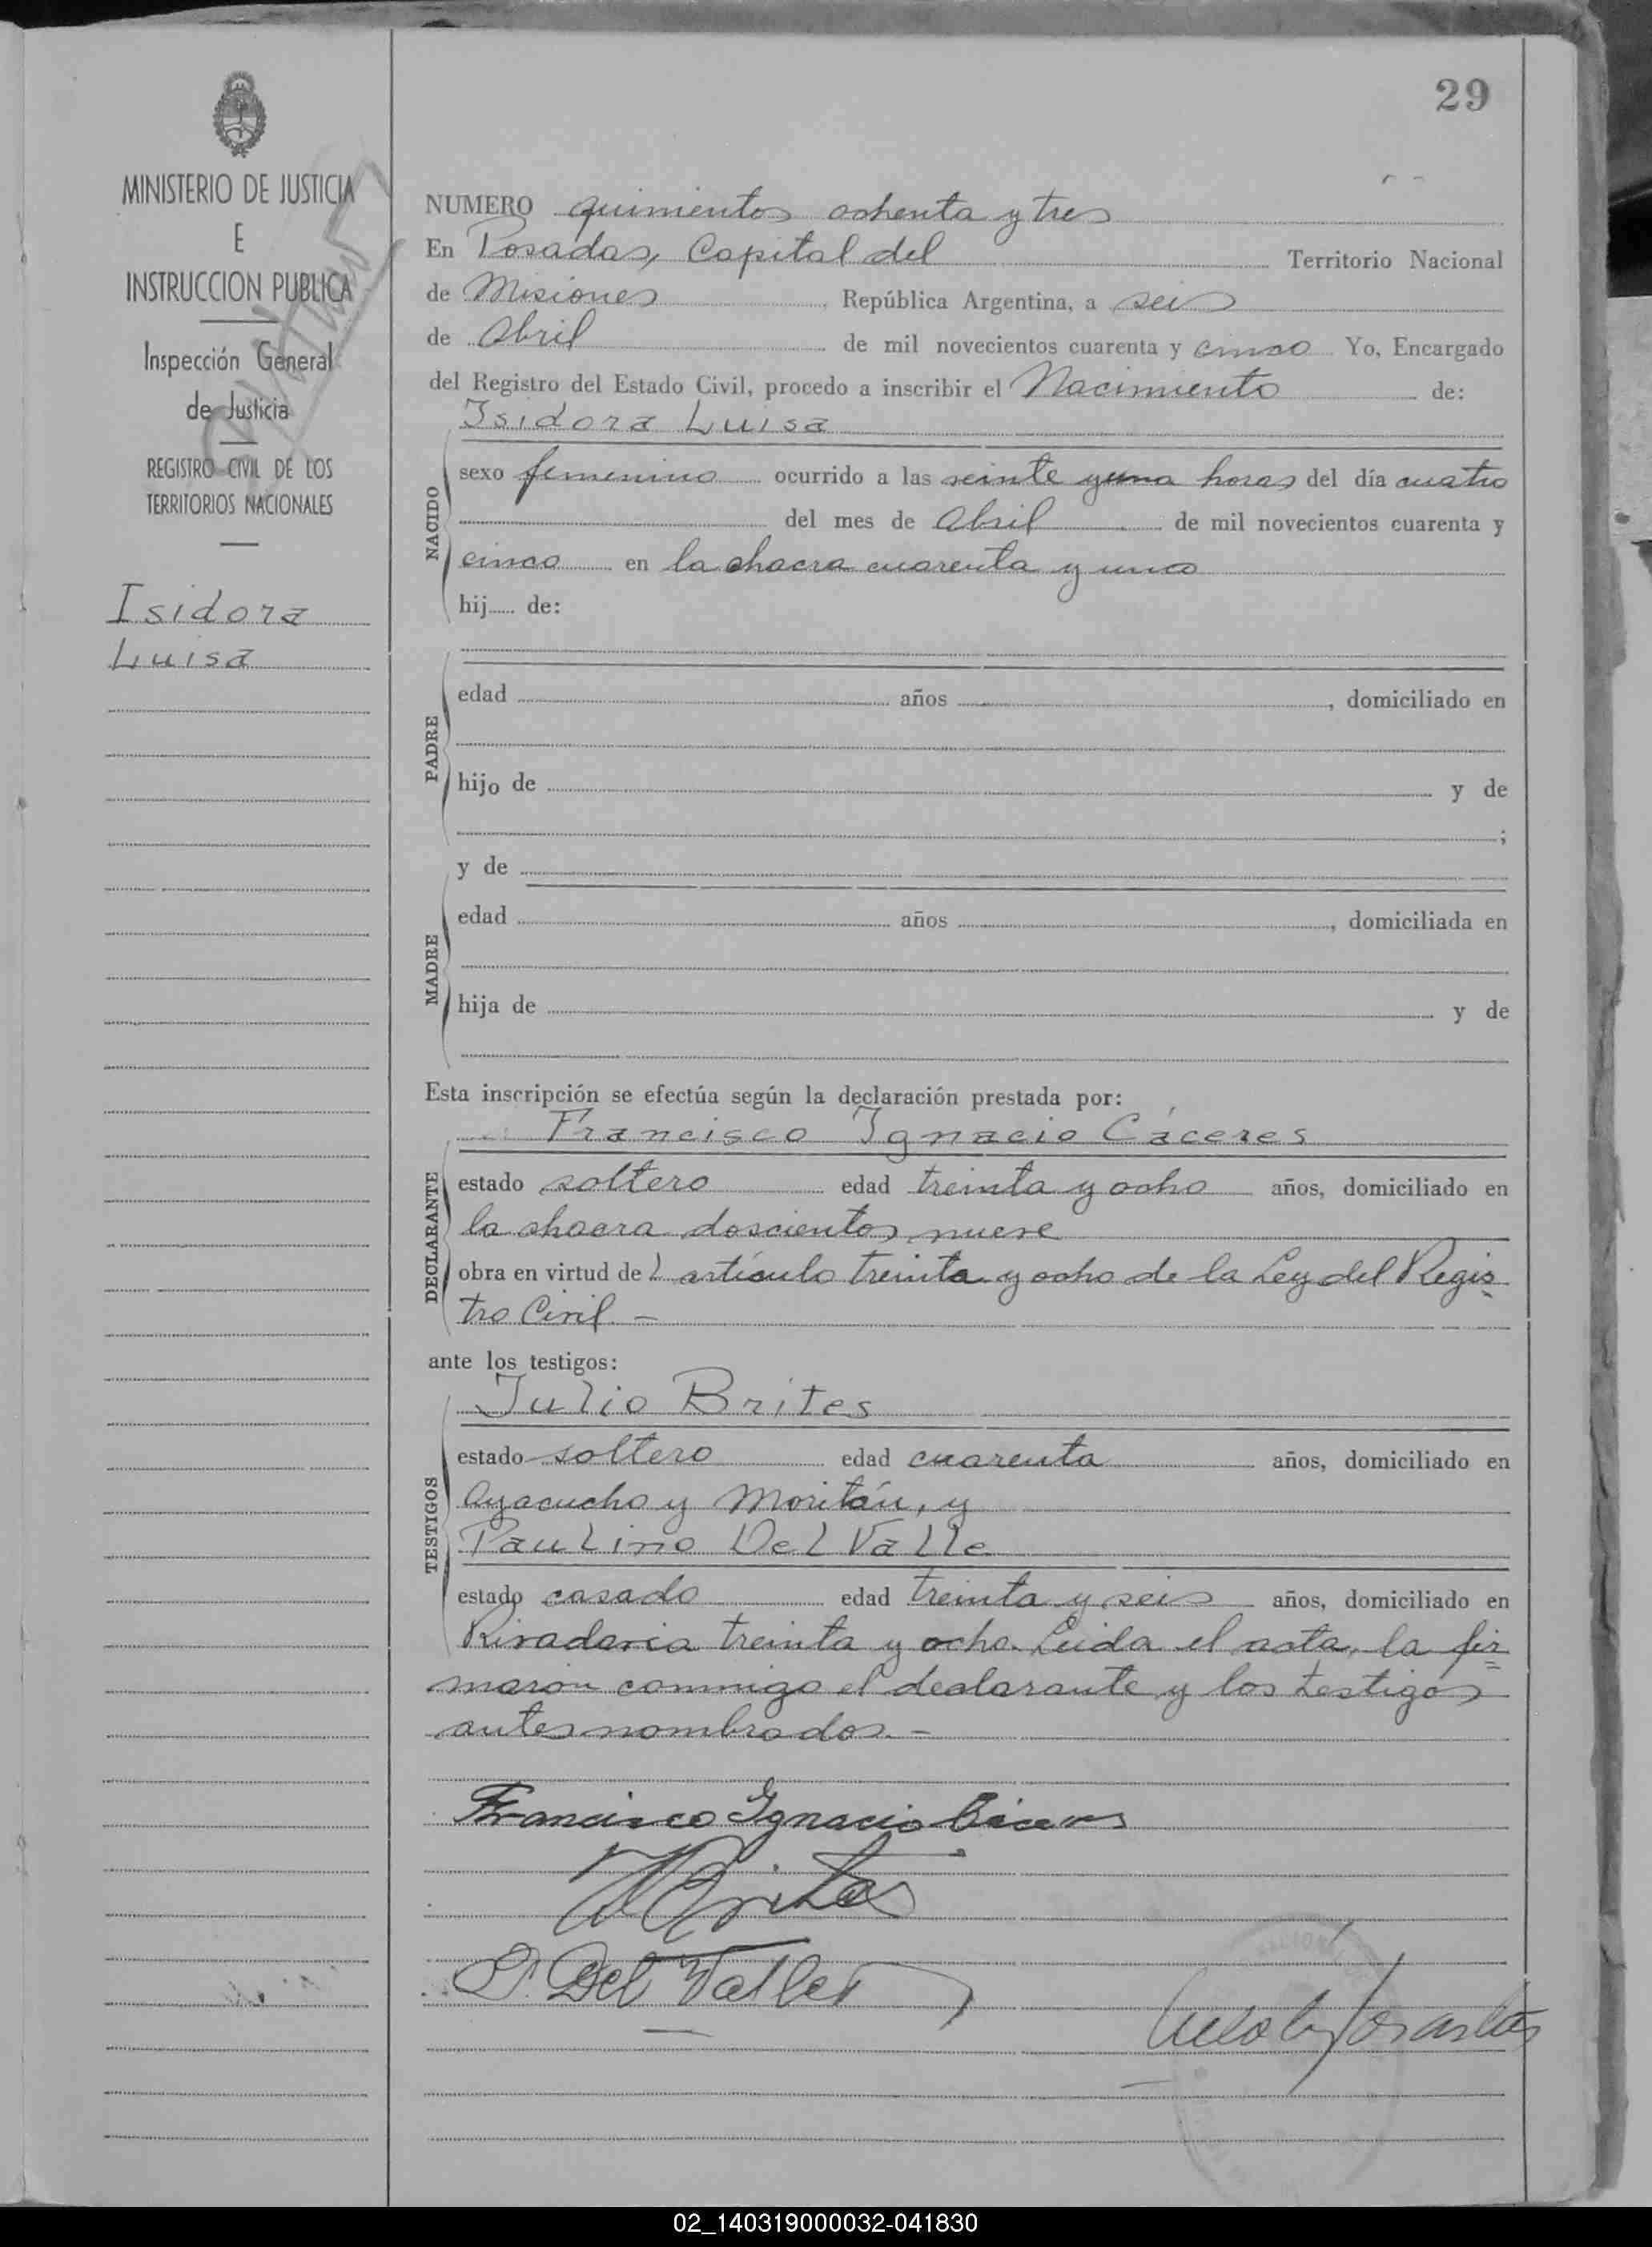 29
MINISTERIO DE JUSTICIA
E
INSTRUCCION PUBLICA
Inspección General
de Justicia
REGISTRO CIVIL DE LOS
TERRITORIOS NACIONALES
Isidora
Luisa
NUMERO quinientos ochenta y tres
En Posadas, Capital del Territorio Nacional
de Misiones República Argentina, a seis
de Abril de mil novecientos cuarenta y cinco Yo, Encargado
del Registro del Estado Civil, procedo a inscribir el Nacimiento de:
Isidora Luisa
NACIDO
sexo femenino ocurrido a las veinte y una horas del día cuatro
del mes de Abril de mil novecientos cuarenta y
cinco en la chacra cuarenta y uno
hij de:
PADRE
edad años , domiciliado en
hijo de y de
;
y de
MADRE
edad años , domiciliada en
hija de y de
Esta inscripción se efectúa según la declaración prestada por:
Francisco Ignacio Cáceres
DECLARANTE
estado soltero edad treinta y ocho años, domiciliado en
la chacra doscientos nueve
obra en virtud del artículo treinta y ocho de la Ley del Regis-
tro Civil. -
ante los testigos:
Julio Brites
TESTIGOS
estado soltero edad cuarenta años, domiciliado en
Ayacucho y Moritán, y
Paulino Del Valle
estado casado edad treinta y seis años, domiciliado en
Rivadavia treinta y ocho. Leida el acta, la fir=
maron conmigo el declarante y los testigos
antes nombrados. =
Francisco Ignacio Cáceres
Brites
P. Del Valle
02_140319000032-041830